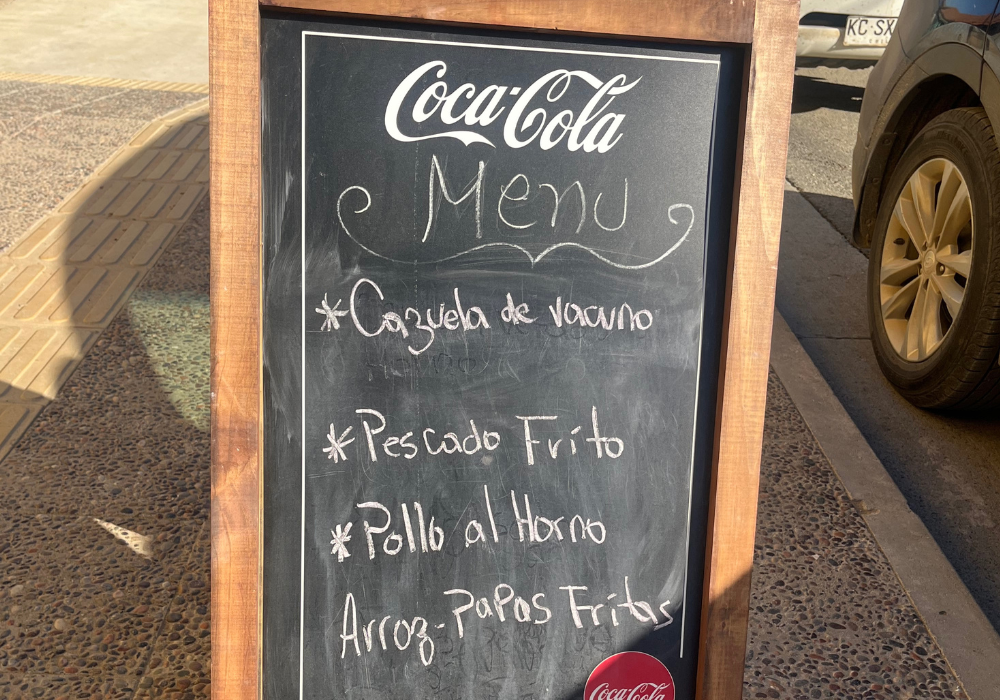 Coca-Cola
Menu
*Cazuela de vacuno
*Pescado Frito
*Pollo al Horno
Arroz-Papas Fritas
Coca-Cola
KC·SX
CHILE